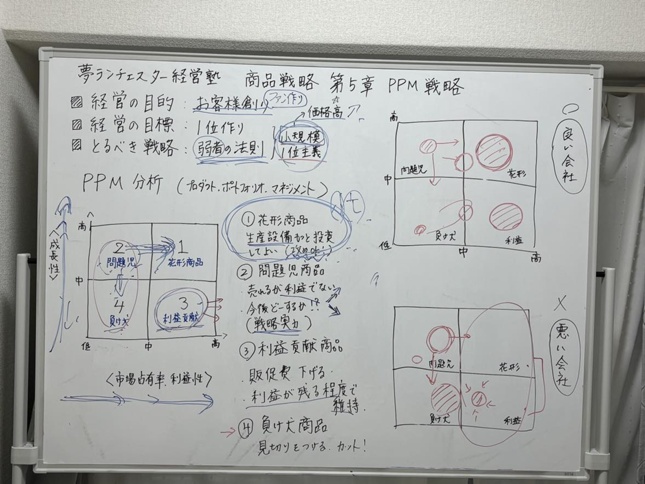 夢ランチェスター経営塾 商品戦略 第5章 PPM戦略
経営の目的: お客様創り ファン作り
経営の目標: 1位作り
とるべき戦略: 弱者の法則
価格高
小規模
1位主義
PPM分析 (プロダクト、ポートフォリオ、マネジメント)
〈成長性〉
高
中
低
2
問題児
1
花形商品
4
負け犬
3
利益貢献
中
高
〈市場占有率、利益性〉
① 花形商品
生産設備もっと投資
してよい
② 問題児商品
売れるが利益でない
今後どーするか!?
(戦略実力)
③ 利益貢献商品
販促費 下げる
利益が残る程度で
維持
④ 負け犬商品
見切りをつける カット!
高
中
低
問題児
花形
負け犬
利益
中
高
○
良い会社
問題児
花形
負け犬
利益
×
悪い会社